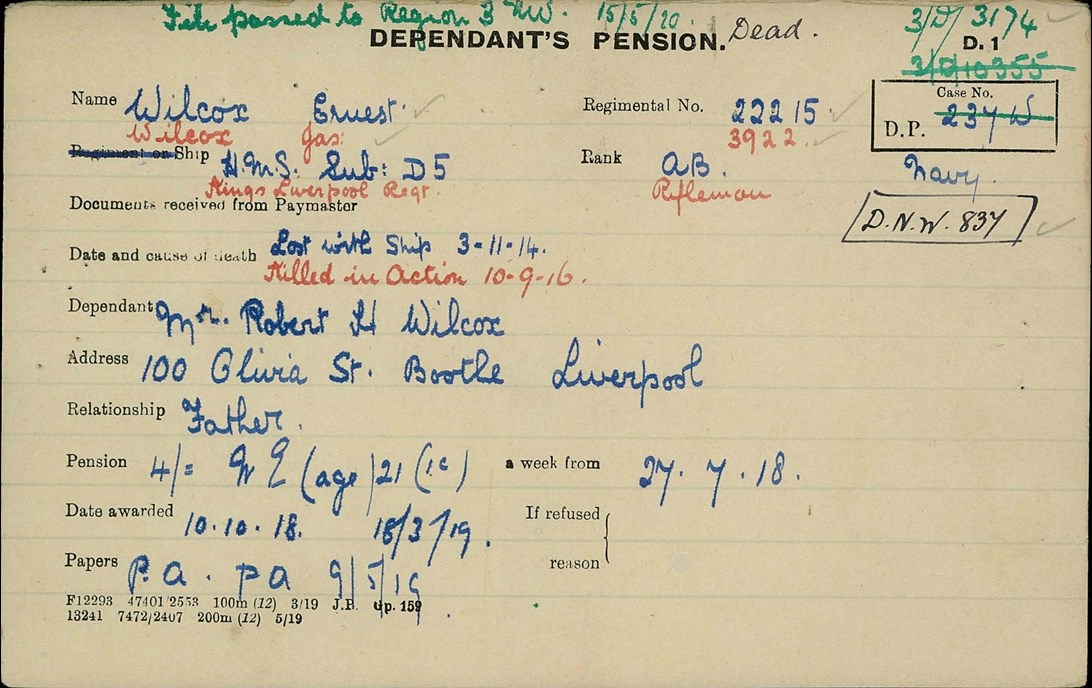 File passed to Region 3 NW. 15/5/20.
DEPENDANT'S PENSION. Dead.
3/D/ 3174
D. 1
3/D/10355
Name Wilcox Ernest
Wilcox Jas:
Regimental No. 22215
3922.
Case No.
D.P. 237W
Regiment or Ship H.M.S. Sub: D5
Kings Liverpool Regt.
Rank AB.
Rifleman
Navy.
D.N.W. 837
Documents received from Paymaster
Date and cause of death Lost with Ship 3-11-14.
Killed in Action 10-9-16.
Dependant Mr. Robert H Wilcox
Address 100 Olivia St. Bootle Liverpool
Relationship Father.
Pension 4/= (age) 21 a week from 27.7.18.
Date awarded 10.10.18. 18/3/19.
If refused
reason
Papers P.a. pa 9/5/19
F12293 47401/2553 100m (12) 3/19 J.P. Gp. 159
13241 7472/2407 200m (12) 5/19